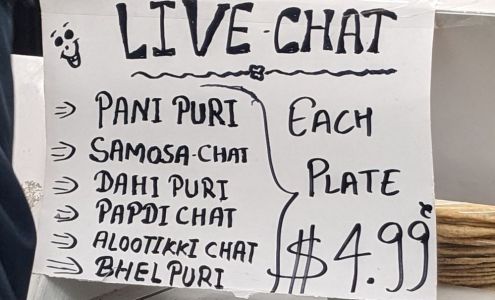 LIVE-CHAT
PANI PURI
SAMOSA-CHAT
DAHI PURI
PAPDI CHAT
ALOOTIKKI CHAT
BHELPURI
EACH
PLATE
$4.99